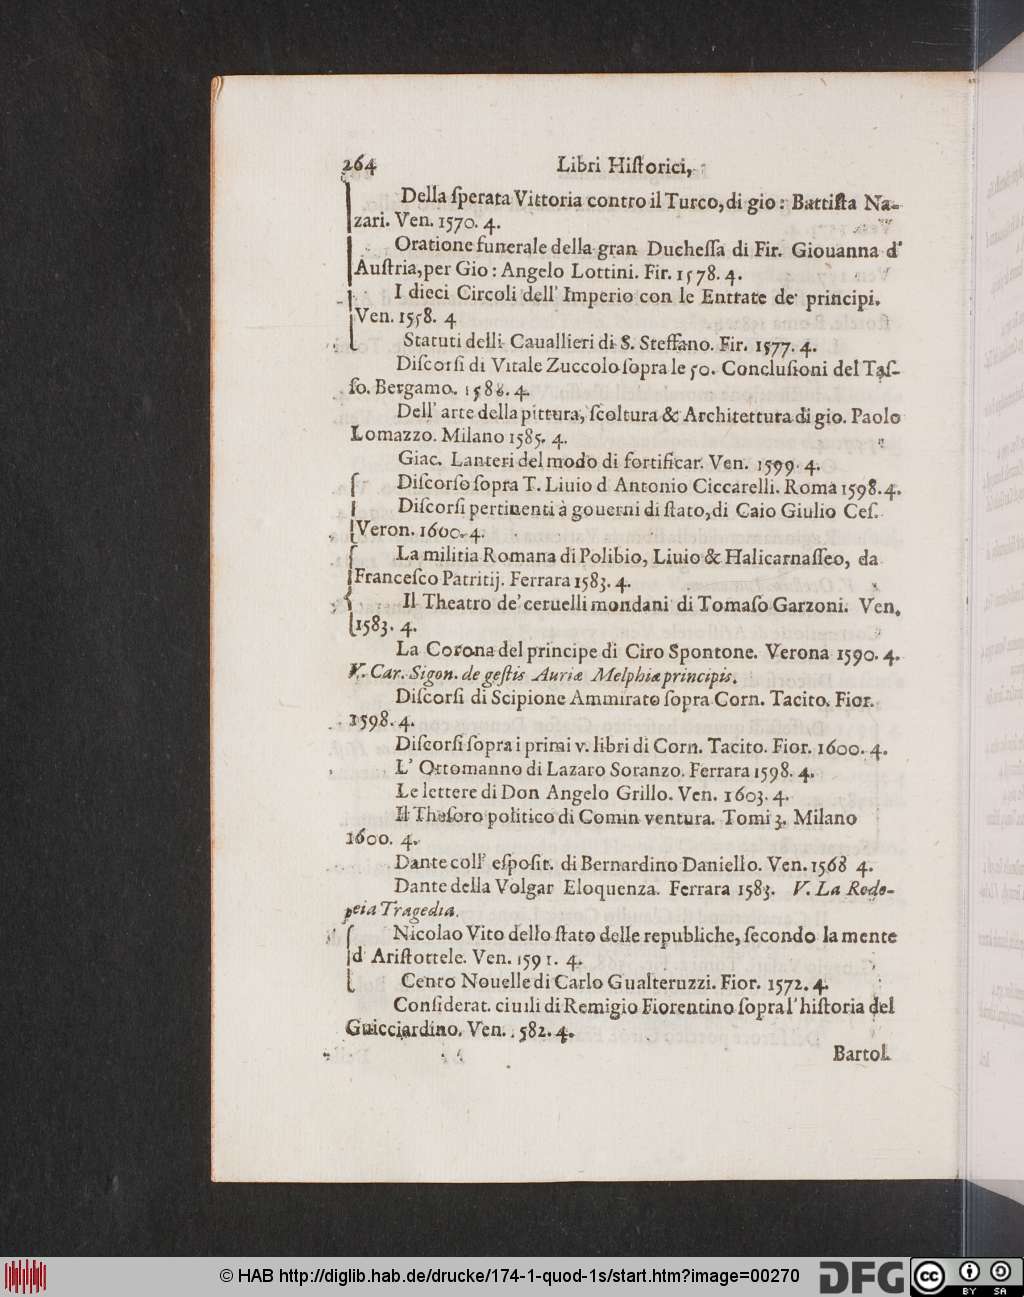 264 Libri Hiſtorici,
Della ſperata Vittoria contro il Turco, di gio: Battiſta Na-
zari. Ven. 1570. 4.
Oratione funerale della gran Ducheſſa di Fir. Giouanna d'
Auſtria, per Gio: Angelo Lottini. Fir. 1578. 4.
I dieci Circoli dell' Imperio con le Entrate de' principi.
Ven. 1558. 4
Statuti delli Cauallieri di S. Steffano. Fir. 1577. 4.
Diſcorſi di Vitale Zuccolo ſopra le 50. Concluſioni del Taſ-
ſo. Bergamo. 1588. 4.
Dell' arte della pittura, ſcoltura & Architettura di gio. Paolo
Lomazzo. Milano 1585. 4.
Giac. Lanteri del modo di fortificar. Ven. 1599. 4.
Diſcorſo ſopra T. Liuio d Antonio Ciccarelli. Roma 1598. 4.
Diſcorſi pertinenti à gouerni di ſtato, di Caio Giulio Ceſ.
Veron. 1600. 4.
La militia Romana di Polibio, Liuio & Halicarnaſſeo, da
Franceſco Patritij. Ferrara 1583. 4.
Il Theatro de' ceruelli mondani di Tomaſo Garzoni. Ven.
1583. 4.
La Corona del principe di Ciro Spontone. Verona 1590. 4.
V. Car. Sigon. de geſtis Auriæ Melphiæ principis.
Diſcorſi di Scipione Ammirato ſopra Corn. Tacito. Fior.
1598. 4.
Diſcorſi ſopra i primi v. libri di Corn. Tacito. Fior. 1600. 4.
L' Ottomanno di Lazaro Soranzo. Ferrara 1598. 4.
Le lettere di Don Angelo Grillo. Ven. 1603. 4.
Il Theſoro politico di Comin ventura. Tomi 3. Milano
1600. 4.
Dante coll' eſpoſit. di Bernardino Daniello. Ven. 1568 4.
Dante della Volgar Eloquenza. Ferrara 1583. V. La Rodo-
peia Tragedia.
Nicolao Vito dello ſtato delle republiche, ſecondo la mente
d Ariſtottele. Ven. 1591. 4.
Cento Nouelle di Carlo Gualteruzzi. Fior. 1572. 4.
Conſiderat. ciuili di Remigio Fiorentino ſopra l' hiſtoria del
Guicciardino. Ven. 582. 4.
Bartol.
© HAB http://diglib.hab.de/drucke/174-1-quod-1s/start.htm?image=00270 DFG CC BY SA